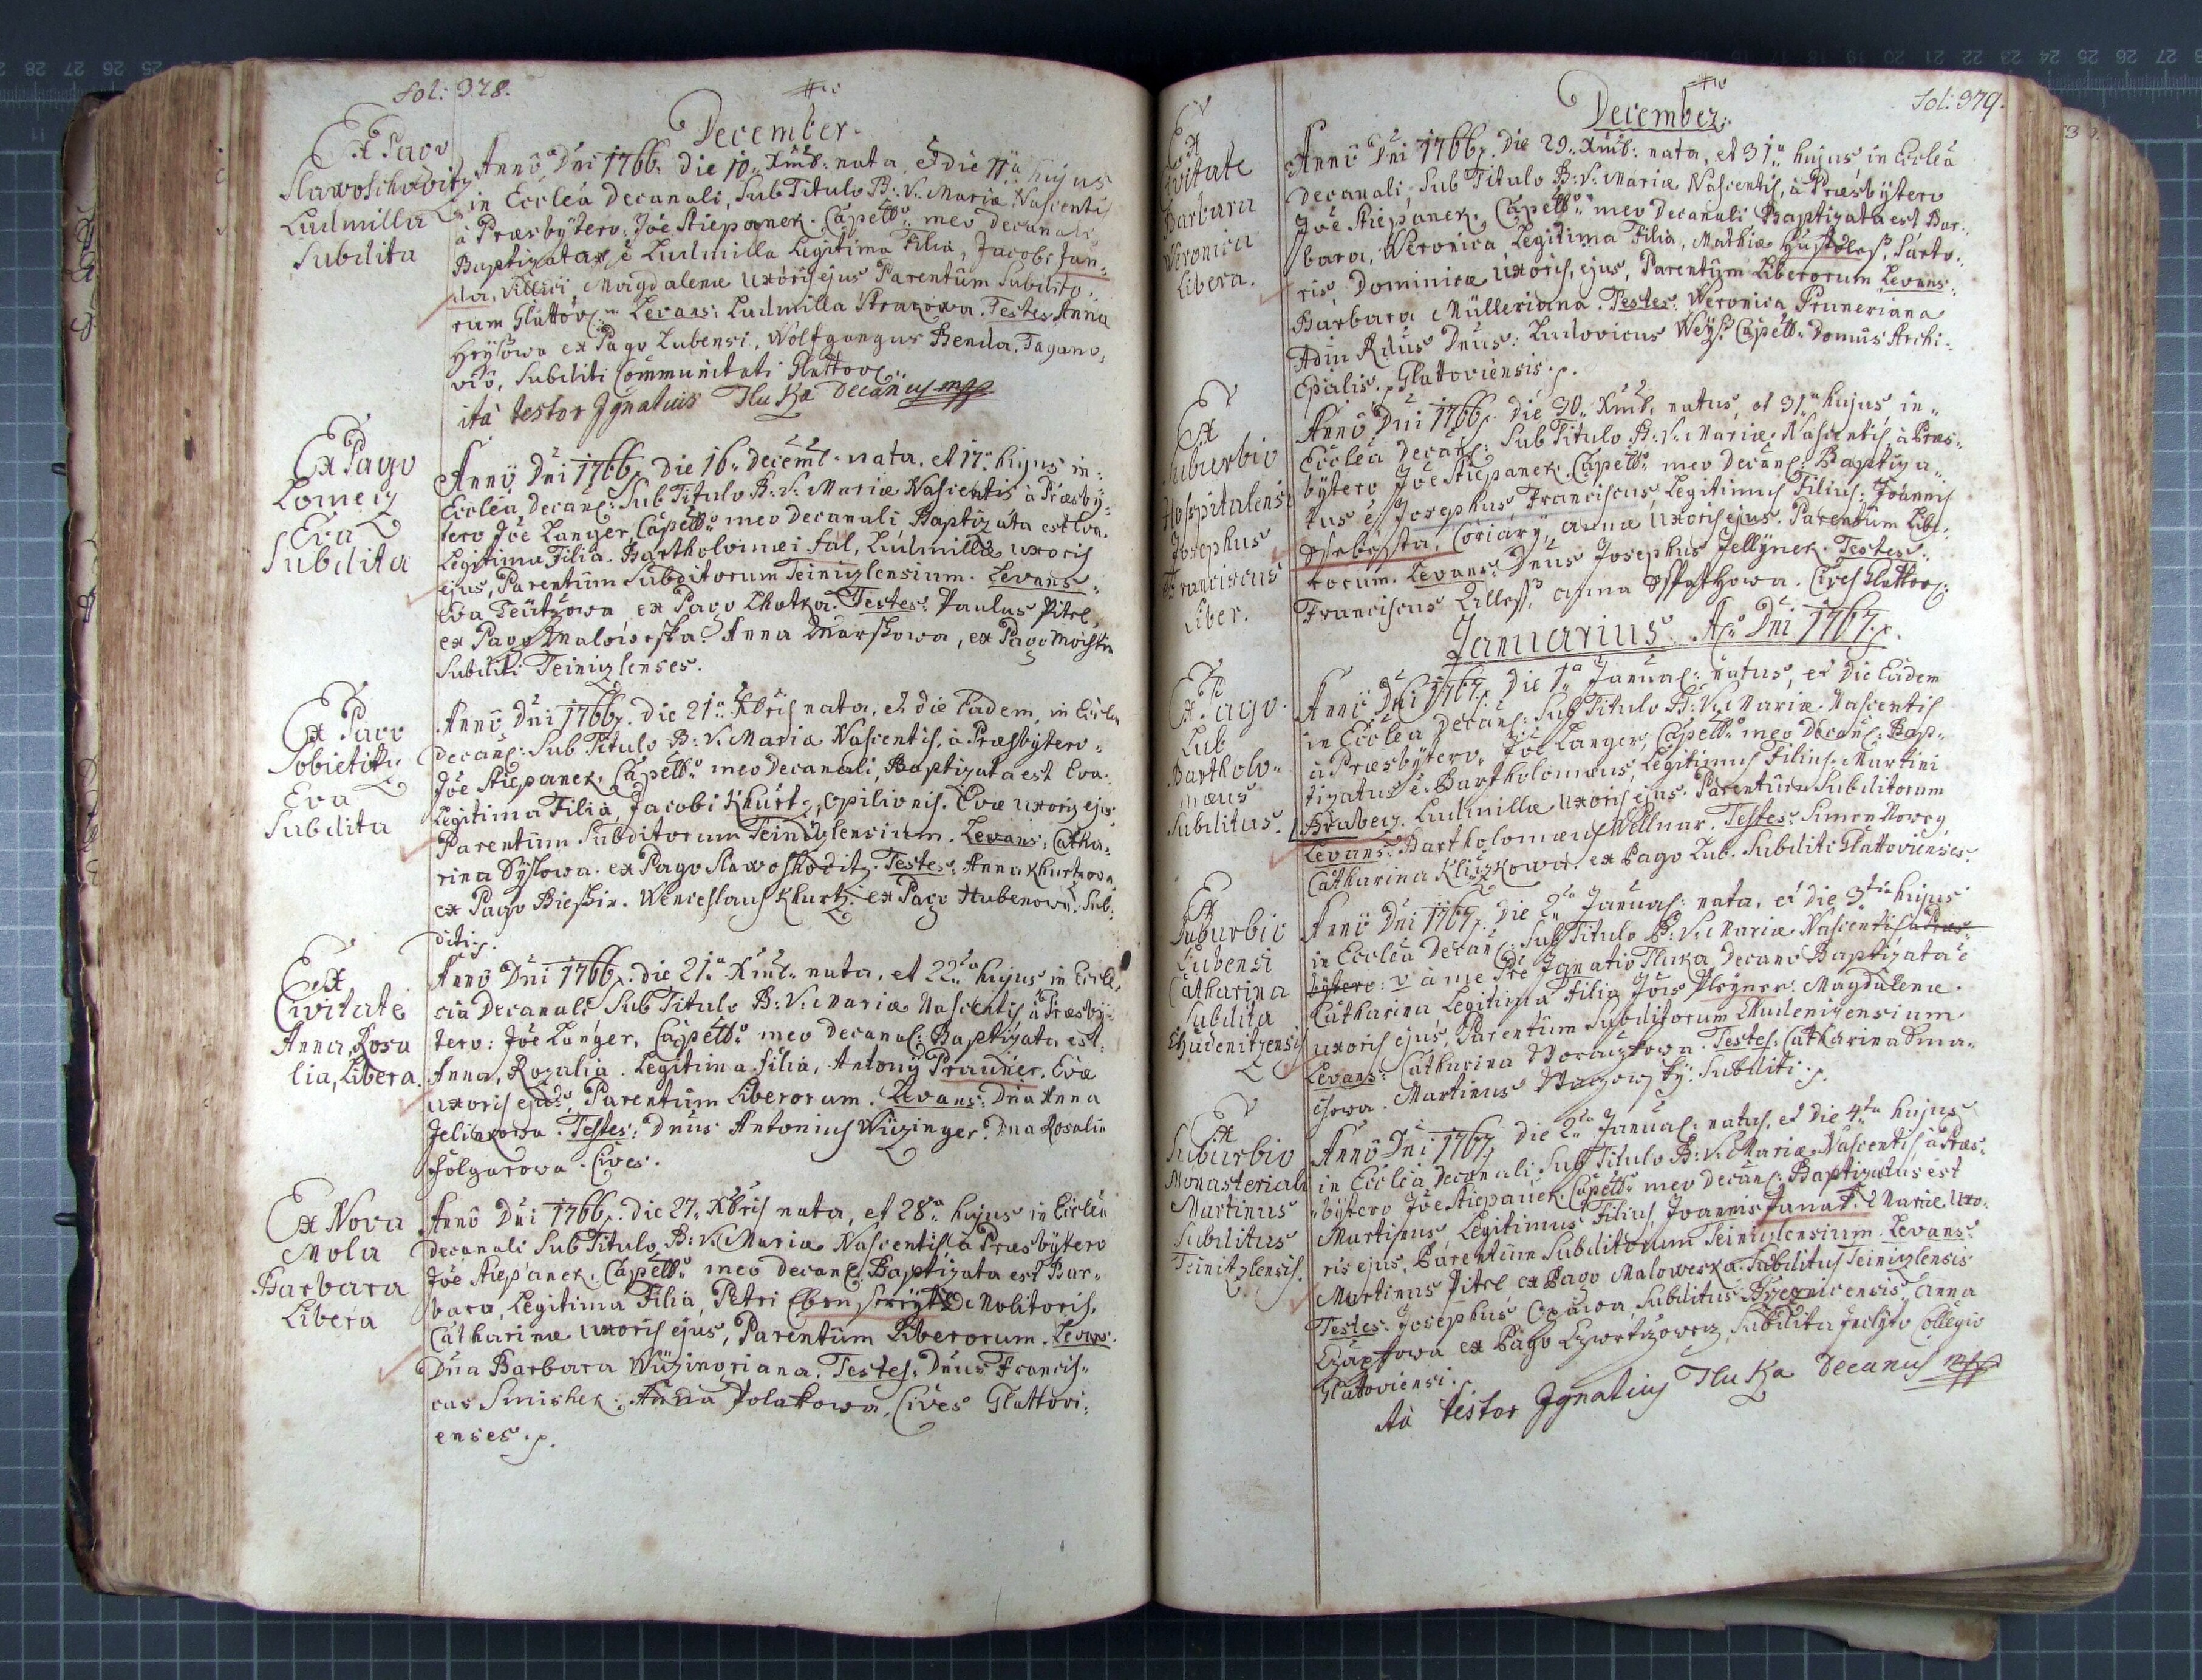 fol: 378.
December.
Ex Pago
Slawoschowitz
Ludmilla
Subdita
Anno Dni 1766. die 10. Xmb: nata, et die 11a hujus
in Ecclea Decanali, Sub Titulo B: V. Mariæ Nascentis
à Præsbytero: Joe Stiepanek. Capello meo Decanali
Baptizata e Ludmilla Legitima Filia, Jacobi Jan=
da, Villici Magdalenæ Uxoris ejus Parentum Subdito=
rum Glattov: Levans: Ludmilla Strakowa. Testes Anna
ex Pago Lubensi, Wolfgangus Benda. Pagano,
Subditi Communitati Glattov:
ità testor Jgnatius Tluka Decanus mpp
Ex Pago
Lometz
Eva
Subdita
Anno Dni 1766. Die 16. Decemb. nata, et 17. hujus in=
Ecclea Decanl: Sub Titulo B: V. Mariæ Nascentis à Præsby=
tero Joe Langer, Capello meo Decanali Baptizata est Eva.
Legitima Filia. Bartholomæi fal, Ludmillæ uxoris
ejus, Parentum Subditorum Teinizlensium. Levans=
Eva ex Pago Lhotka. Testes: Paulus Pitrl,
ex Pago Maloweska. Anna Marschowa, ex Pago
Subditi Teinizlenses.
Ex Pago
Sobietitz
Eva
Subdita
Anno Dni 1766. die 21a Xbris nata, et die Eadem, in Ecclea
Decanl: Sub Titulo B: V. Maria Nascentis, à Præsbytero=
Joe Stiepanek. Capello meo Decanali, Baptizata est Eva.
Legitima Filia, Jacobi Khurtz, opilionis. Evæ uxoris ejus
Parentum Subditorum Teinizlensium. Levans: Catha=
rina Sysowa. ex Pago Slawoschowitz. Testes: Anna Khurtzowa
ex Pago Bieschin. Wenceslaus Khurtz. ex Pago Hubenow. Sub=
diti.
Ex
Civitate
Anna, Rosa
lia, Libera.
Anno Dni 1766. die 21a Xmb: nata, et 22da hujus in Eccle,
sia Decanali Sub Titulo B: V. Mariæ Nascentis à Præsby=
tero: Joe Langer, Capello meo Decanal: Baptizata est:
Anna, Rozalia. Legitima filia, Antony Prauner. Evæ
uxoris ejus, Parentum Liberorum. Levans: Dna Anna
Jelinkowa. Testes: Dnus Antonius Wüzinger. Dna Rosalia
Folgarowa. Cives.
Ex Nova
Mola
Barbara
Libera
Anno Dni 1766. die 27. Xbris nata, et 28a hujus in Ecclea
Decanali Sub Titulo B: V. Mariæ Nascentis, à Præsbytero
Joe Stiepanek. Capello meo Decanl. Baptizata est Bar=
bara, Legitima Filia, Petri Molitoris,
Catharinæ uxoris ejus, Parentum Liberorum. Levans.
Dna Barbara Wüzingriana. Testes: Dnus Francis=
cus Smishek. Anna Polakowa, Cives Glattovi=
enses.
fol: 379.
December.
Ex
Civitate
Barbara
Veronica
Libera.
Anno Dni 1766. Die 29. Xmb: nata, et 31a hujus in Ecclea
Decanali, Sub Titulo B: V. Mariæ Nascentis, à Præsbytero
Joe Stiepanek. Capello meo Decanali Baptizata est Bar=
bara, Weronica Legitima Filia, Mathiæ Sarto=
ris Dominicæ Uxoris, ejus, Parentum Liberorum Levans=
Barbara Mülleriana. Testes: Weronica Pruneriana
Adm Rdus Dnus: Ludovicus Weys. Capell: Domus Archi=
Epialis. Glattoviensis.
Ex
Suburbio
Hospitalensi
Josephus
Franciscus
Liber.
Anno Dni 1766. Die 30. Xmb. natus, et 31a hujus, in=
Ecclea Decanl: Sub Titulo B: V. Mariæ Nascentis, à Præs=
bytero Joe Stiepanek. Capello meo Decanl: Baptiza=
tus e Josephus, Franciscus, Legitimus Filius: Joannis
Coriary, annæ Uxoris ejus. Parentum Libe=
rorum. Levans: Dnus Josephus Jellynek. Testes:
Franciscus Lilless, anna Cives Glattov:
Januarius. Ao Dni 1767.
Ex Pago
Lub
Bartholo=
mæus
Subditus.
Anno Dni 1767. Die 1a Januar: natus, et die Eadem
in Ecclea Decanl: Sub Titulo B: V. Mariæ Nascentis
à Præsbytero Joe Langer, Capello meo Decanl: Bap=
tizatus e Bartholomæus, Legitimus Filius. Martini
Hrabetz. Ludmillæ Uxoris ejus. Parentum Subditorum
Levans: Bartholomæus Wellnar. Testes: Simon Nowy
Catharina Kliczkowa. ex Pago Lub. Subditi Glattovienses.
Ex
Suburbio
Lubensi
Catharina
Subdita
Chudenitzensis
Anno Dni 1767. Die 2da Januar: nata, et die 3tia hujus
in Ecclea Decanl: Sub Titulo B: V. Mariæ Nascentis à Præs=
bytero: à me Pre Jgnatio Tluka Decano Baptizata e
Catharina Legitima Filia Jois Magdalenæ.
uxoris ejus, Parentum Subditorum Chudenizensium
Levans: Catharina Testes: Catharina Sma=
chowa. Martinus Subditi.
Ex
Suburbio
Monasteriali
Martinus
Subditus
Teinitzlensis.
Anno Dni 1767. Die 2da Januar: natus, et die 4ta hujus
in Ecclea Decanali Sub Titulo B: V. Mariæ Nascentis à Præs=
bytero Joe Stiepanek. Capello meo Decanl: Baptizatus est
Martinus, Legitimus Filius, Joannis Janat. Mariæ Uxo=
ris ejus, Parentum Subditorum Teinizlensium. Levans:
Martinus Pitrl ex Pago Maloweska. Subditus Teinizlensis
Testes. Josephus Subditus Anna
Czapkowa ex Pago Subdita Jnclyto Collegio
Glattoviensi.
ità testor Jgnatius Tluka Decanus mpp